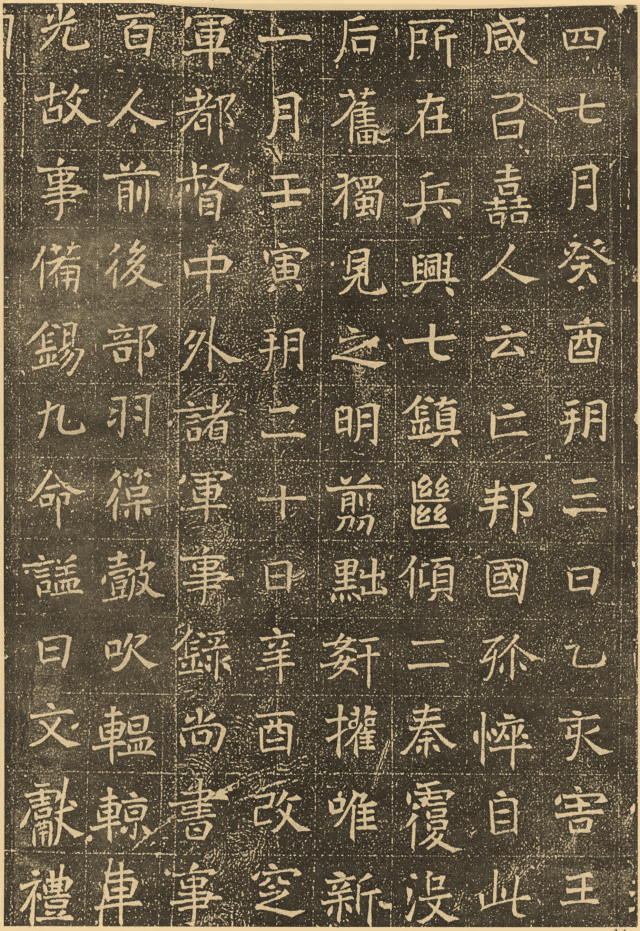 四七月癸酉朔三日乙亥害王
咸召嚞人云亡邦國殄悴自此
所在兵興七鎮繼傾二秦覆没
后舊獨見之明剪黜奸權唯新
一月壬寅朔二十日辛酉改窆
軍都督中外諸軍事錄尚書事
百人前後部羽葆鼓吹轀輬車
光故事備錫九命謚曰文獻禮